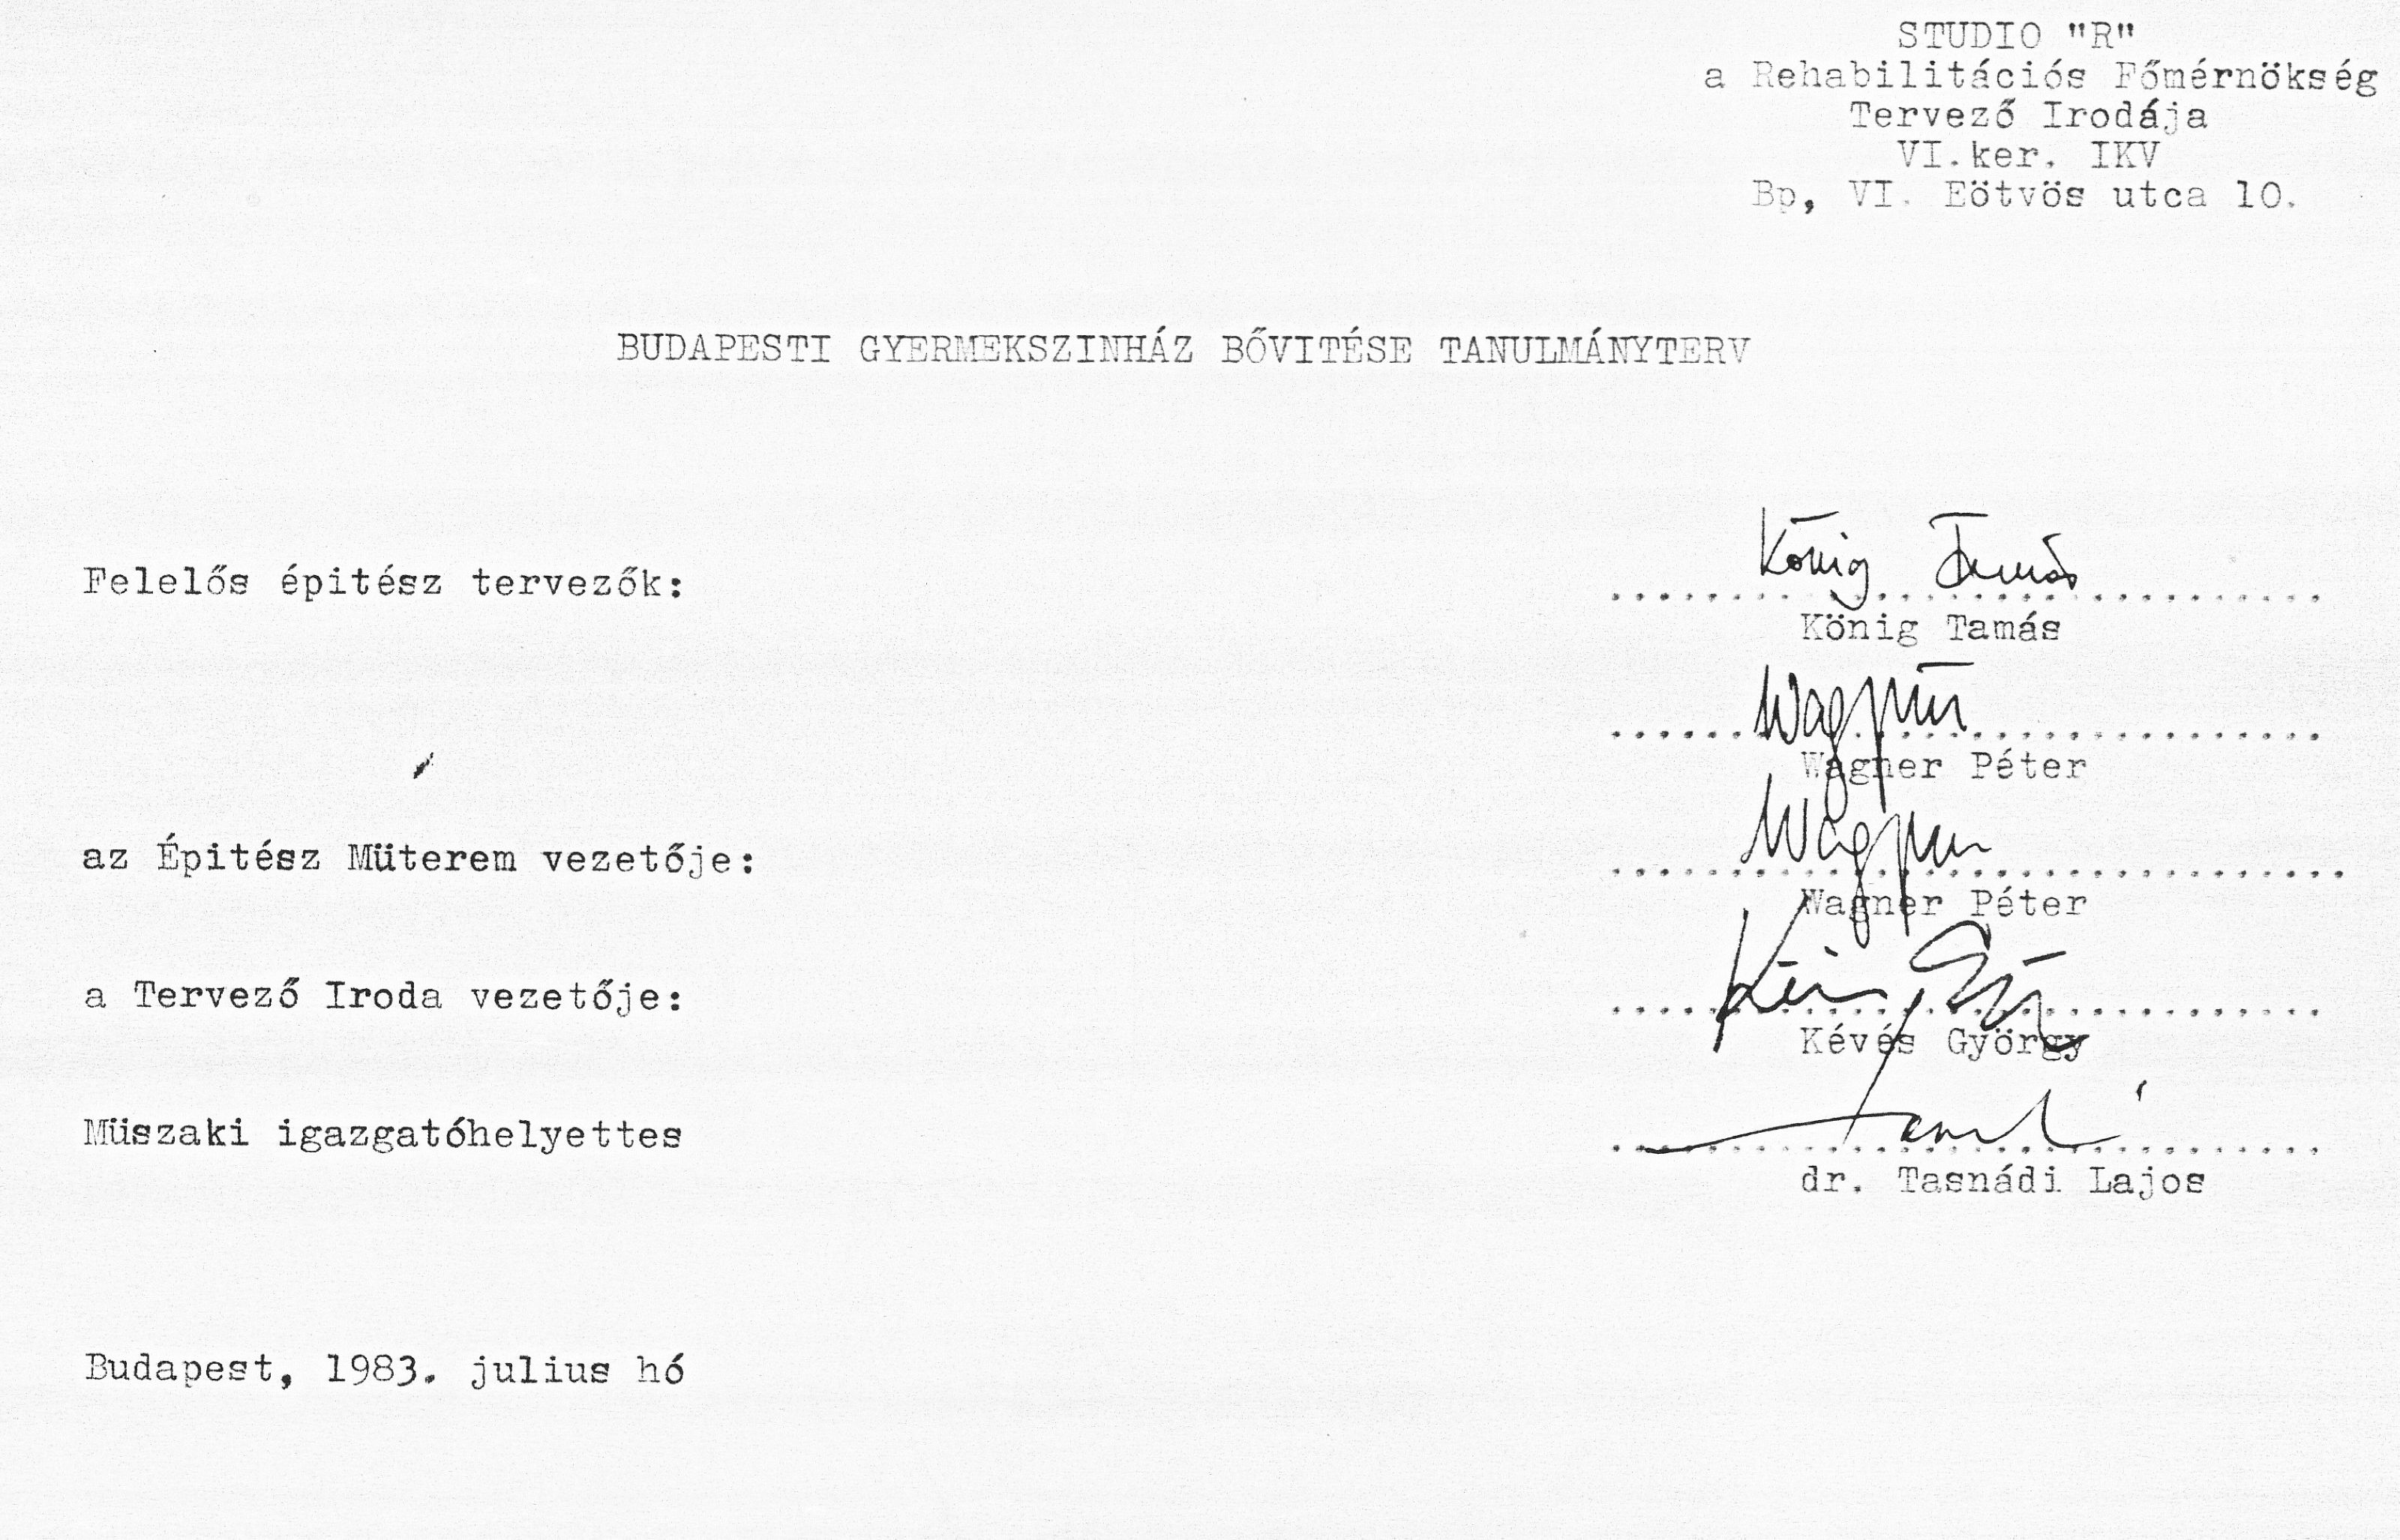 STUDIO "R"
a Rehabilitációs Főmérnökség
Tervező Irodája
VI.ker. IKV
Bp, VI. Eötvös utca 10.
BUDAPESTI GYERMEKSZINHÁZ BŐVITÉSE TANULMÁNYTERV
König Tamás
Felelős épitész tervezők: ..............................
König Tamás
Wagner Péter
..............................
Wagner Péter
Wagner
az Épitész Müterem vezetője: ...............................
Wagner Péter
a Tervező Iroda vezetője: ..............................
Kévés György
Müszaki igazgatóhelyettes ..............................
dr. Tasnádi Lajos
Budapest, 1983. julius hó